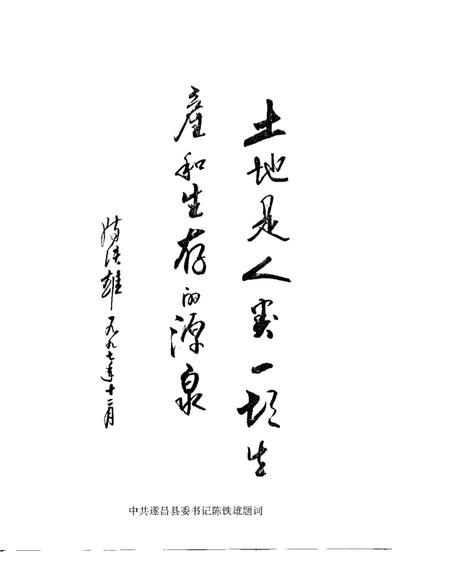 土地是人类一切生
產和生存的源泉
陈铁雄 一九九七年十二月
中共遂昌县委书记陈铁雄题词